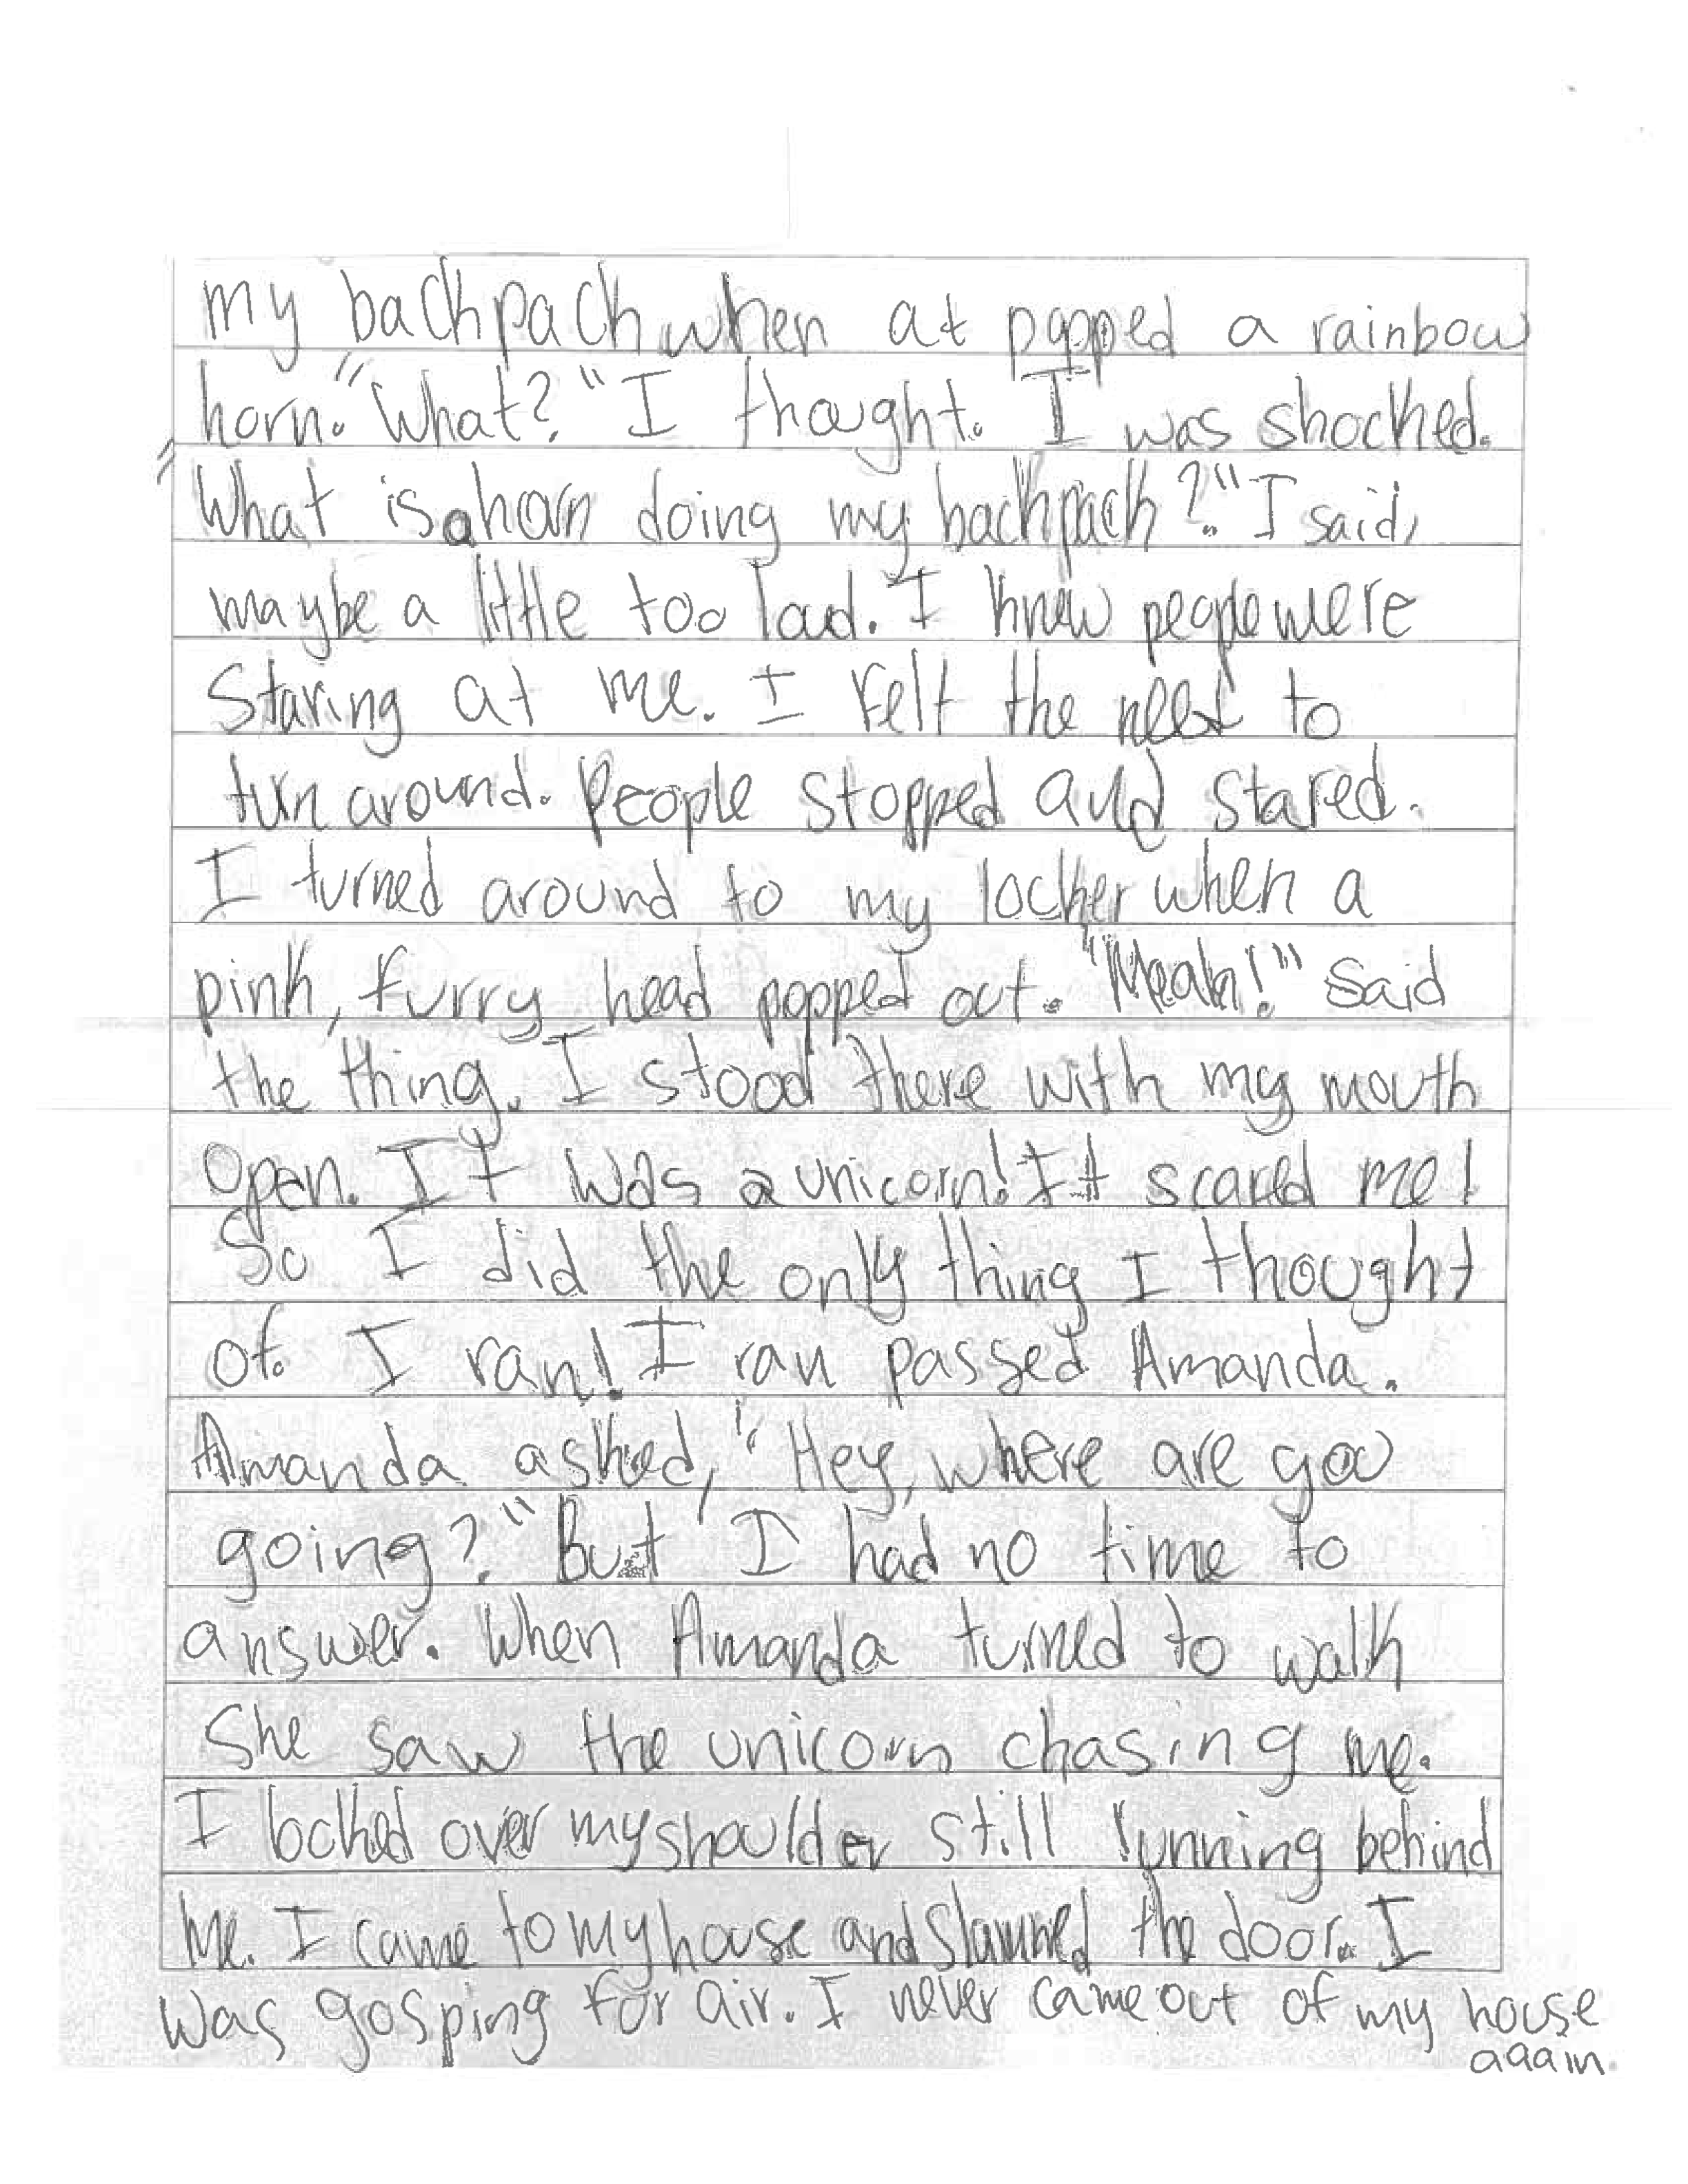 my backpack when at popped a rainbow
horn. "What?" I thought. I was shocked.
"What is a horn doing my backpack?" I said,
maybe a little too loud. I knew people were
staring at me. I felt the need to
turn around. People stopped and stared.
I turned around to my locker when a
pink, furry head popped out. "Meah!" said
the thing. I stood there with my mouth
open. It was a unicorn! It scared me!
So I did the only thing I thought
of. I ran! I ran passed Amanda.
Amanda asked, "Hey, where are you
going?" But I had no time to
answer. When Amanda turned to walk
she saw the unicorn chasing me.
I looked over my shoulder still running behind
me. I came to my house and slammed the door. I
was gosping for air. I never came out of my house
again.